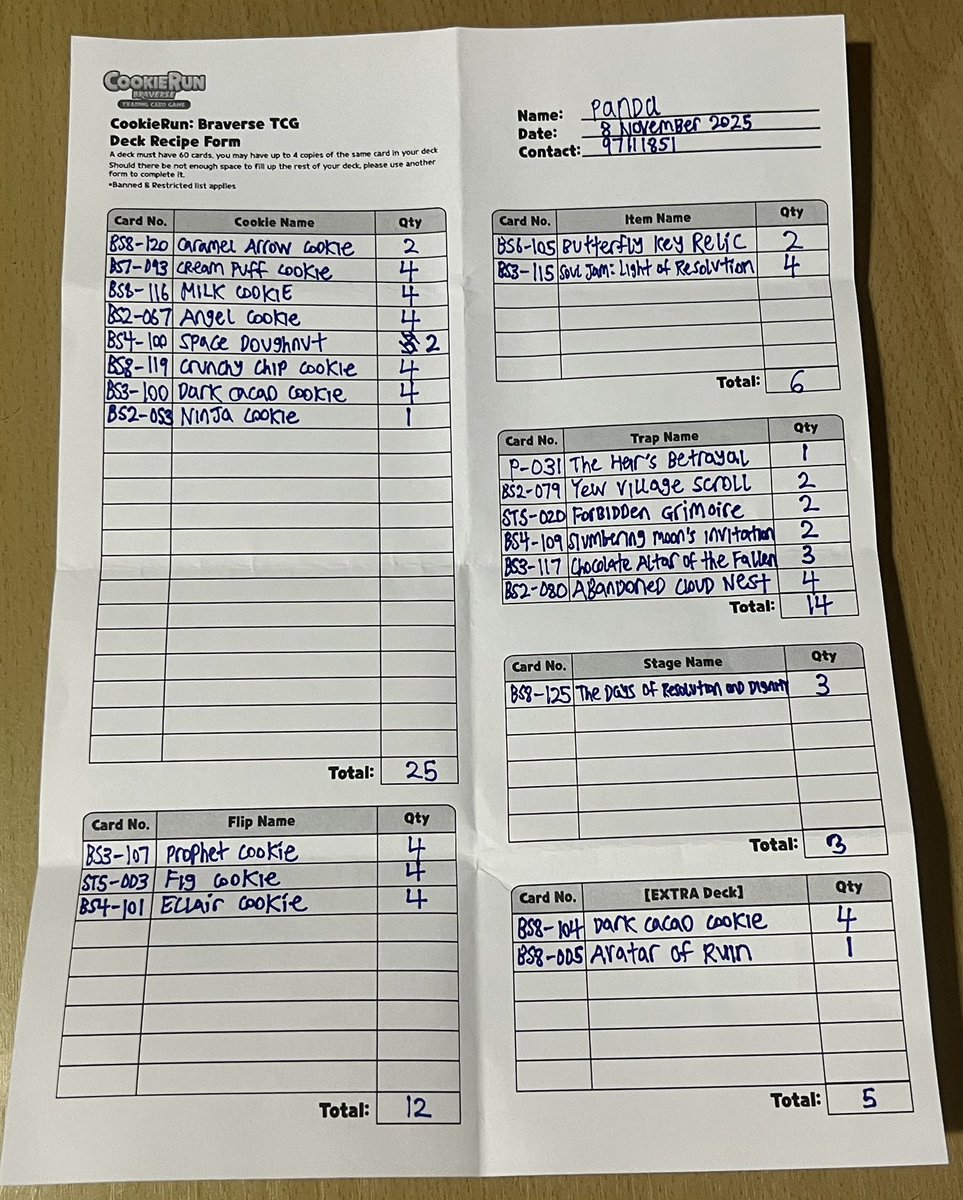 COOKIERUN
BRAVERSE
TRADING CARD GAME
CookieRun: Braverse TCG
Deck Recipe Form
A deck must have 60 cards, you may have up to 4 copies of the same card in your deck
Should there be not enough space to fill up the rest of your deck, please use another
form to complete it.
*Banned & Restricted list applies
Name: Panda
Date: 8 November 2025
Contact: 97111851
Card No. Cookie Name Qty
BS8-120 Caramel Arrow Cookie 2
BS7-093 Cream Puff Cookie 4
BS8-116 MILK COOKIE 4
BS2-067 Angel Cookie 4
BS4-100 Space Doughnut 2
BS8-119 Crunchy Chip Cookie 4
BS3-100 Dark Cacao Cookie 4
BS2-053 Ninja Cookie 1
Total: 25
Card No. Flip Name Qty
BS3-107 Prophet Cookie 4
ST5-003 Fig Cookie 4
BS4-101 Eclair Cookie 4
Total: 12
Card No. Item Name Qty
BS6-105 Butterfly Key Relic 2
BS3-115 Soul Jam: Light of Resolution 4
Total: 6
Card No. Trap Name Qty
P-031 The Heir's Betrayal 1
BS2-079 Yew Village Scroll 2
ST5-020 Forbidden Grimoire 2
BS4-109 Slumbering Moon's Invitation 2
BS3-117 Chocolate Altar of the Fallen 3
BS2-080 Abandoned Cloud Nest 4
Total: 14
Card No. Stage Name Qty
BS8-125 The Days of Resolution and Dignity 3
Total: 3
Card No. [EXTRA Deck] Qty
BS8-104 Dark Cacao Cookie 4
BS8-005 Avatar of Ruin 1
Total: 5